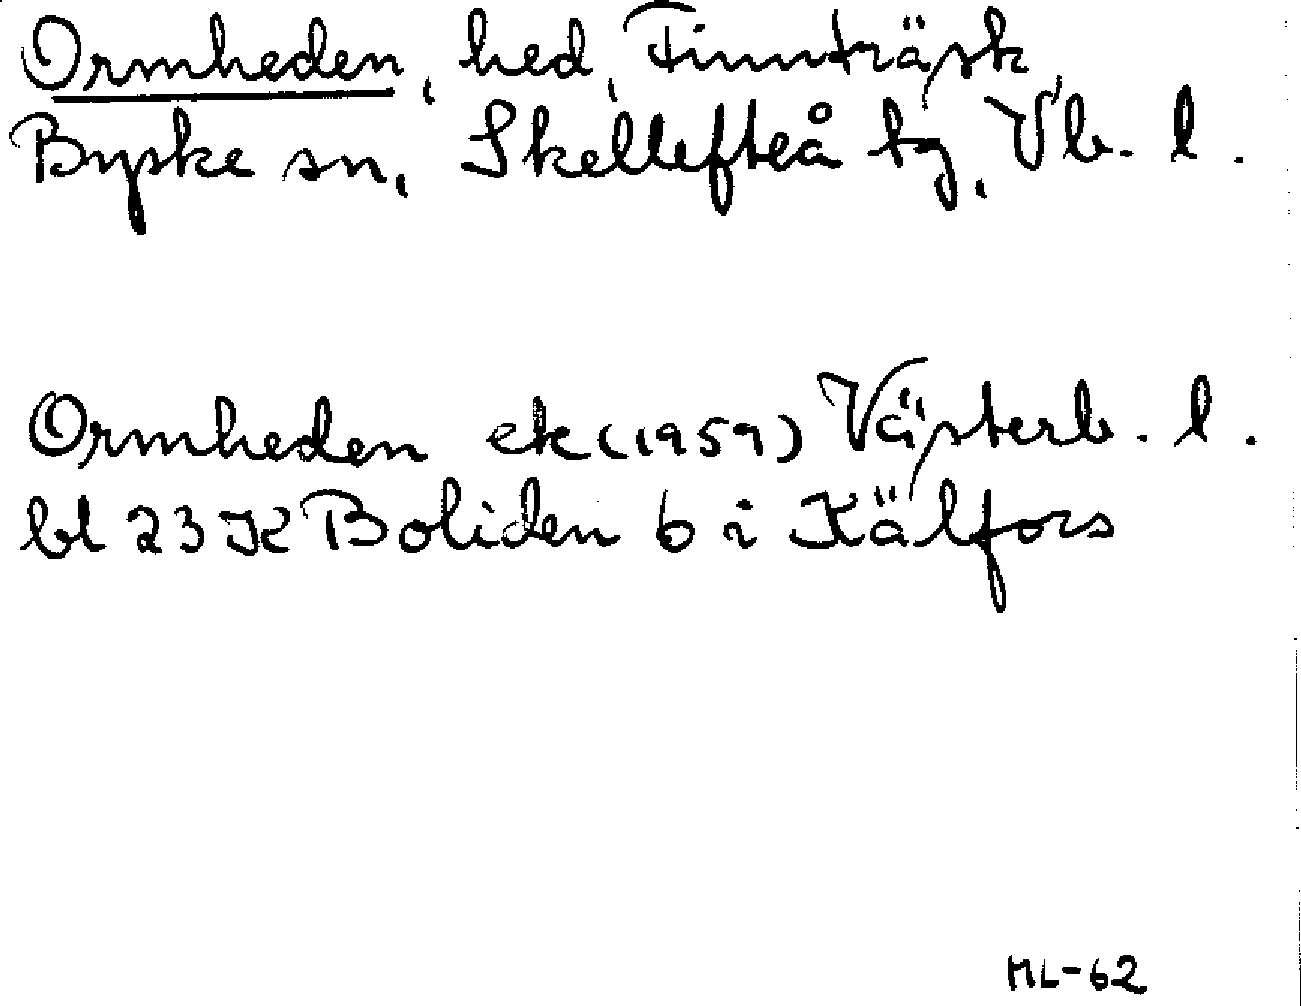 Ormheden, hed, Finnträsk,
Byske sn, Skellefteå tg, Vb. l.
Ormheden ek (1959) Västerb. l.
bl 23 K Boliden 6 i Kälfors
ML-62